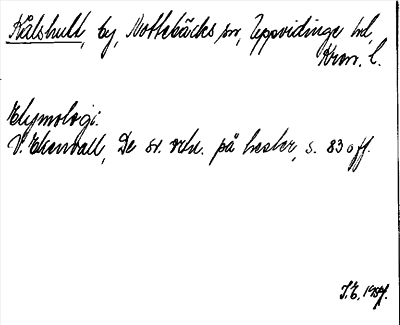 Kålshult, by, Nottebäcks sn, Uppvidinge hd,
Kron. l.
Etymologi:
V. Ekenvall, De sv. ortn. på hester, s. 83 o ff.